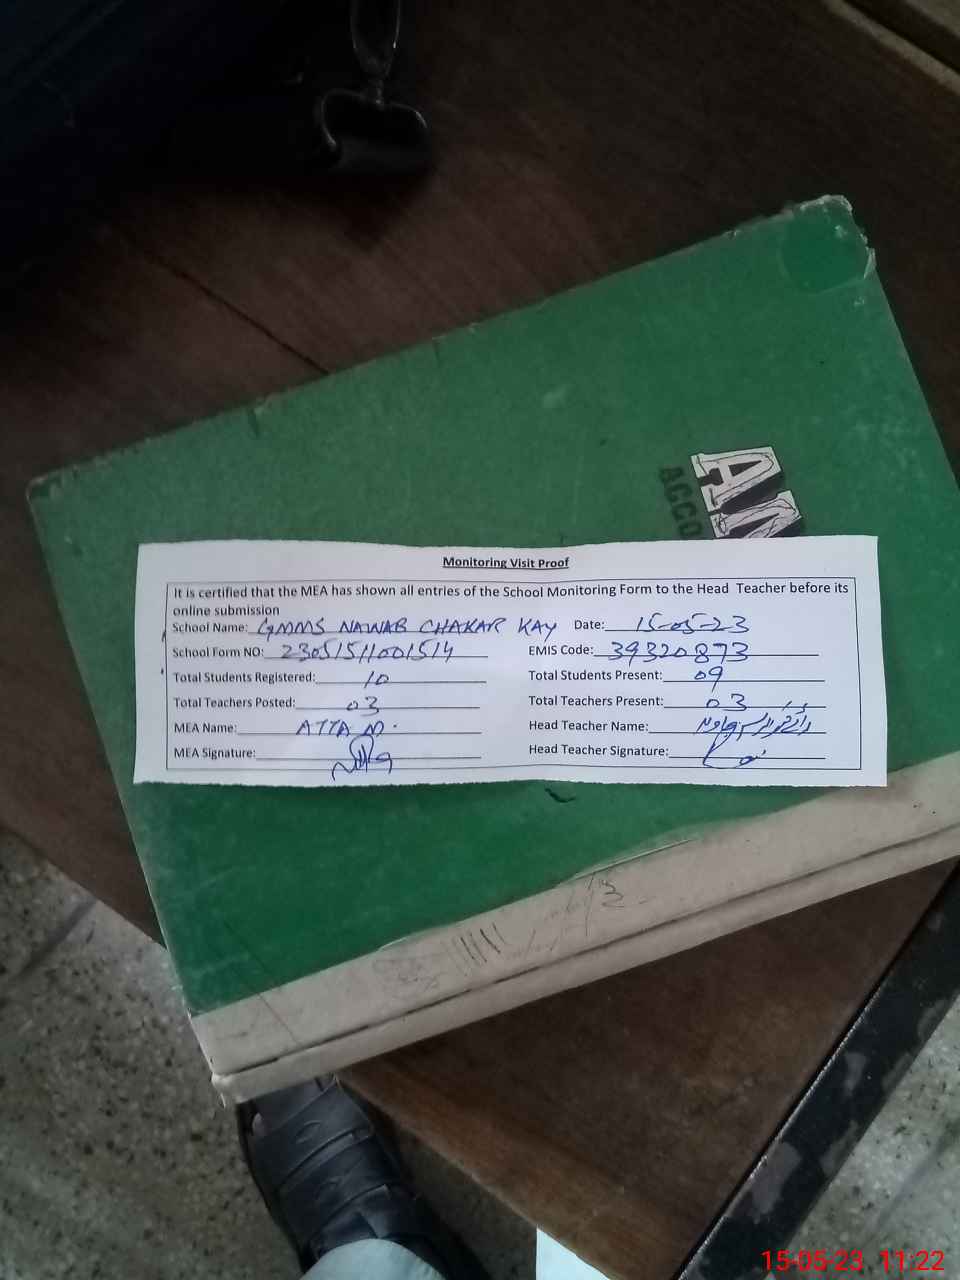 AM
ACCO
Monitoring Visit Proof
It is certified that the MEA has shown all entries of the School Monitoring Form to the Head Teacher before its
online submission
School Name: GMMS NAWAB CHAKAR KAY Date: 15-05-23
School Form NO: 23051511001514 EMIS Code: 39320873
Total Students Registered: 10 Total Students Present: 09
Total Teachers Posted: 03 Total Teachers Present: 03
MEA Name: ATTA M. Head Teacher Name:
MEA Signature: Head Teacher Signature:
15-05-23 11:22